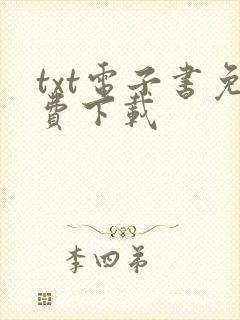 txt電子書免
費下載
李四弟